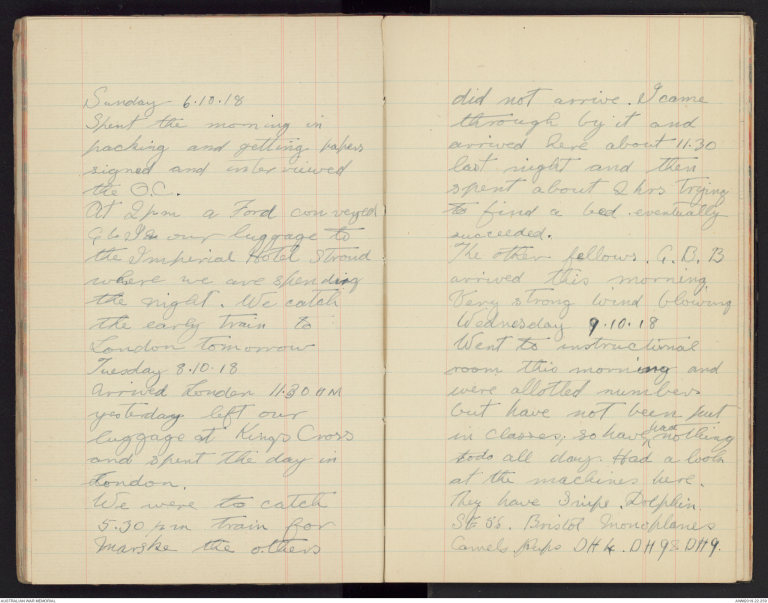 Sunday 6.10.18
Spent the morning in
packing and getting papers
signed and interviewed
the O.C.
At 2pm a Ford conveyed
G & I & our luggage to
the Imperial Hotel Stroud
where we are spending
the night. We catch
the early train to
London tomorrow
Tuesday 8.10.18
Arrived London 11.30 am
yesterday left our
luggage at Kings Cross
and spent the day in
London.
We were to catch
5.30 pm train for
Marske the others
did not arrive. I came
through by it and
arrived here about 11.30
last night and then
spent about 2 hrs trying
to find a bed. eventually
succeeded.
The other fellows. G. B. B
arrived this morning
Very strong wind blowing
Wednesday 9.10.18
Went to instructional
room this morning and
were allotted numbers
but have not been put
in classes, so have had nothing
todo all day. Had a look
at the machines here.
They have Snipe. Dolphin.
SE5s. Bristol Monoplanes
Camels. Pups DH4. DH98 DH9.
AUSTRALIAN WAR MEMORIAL